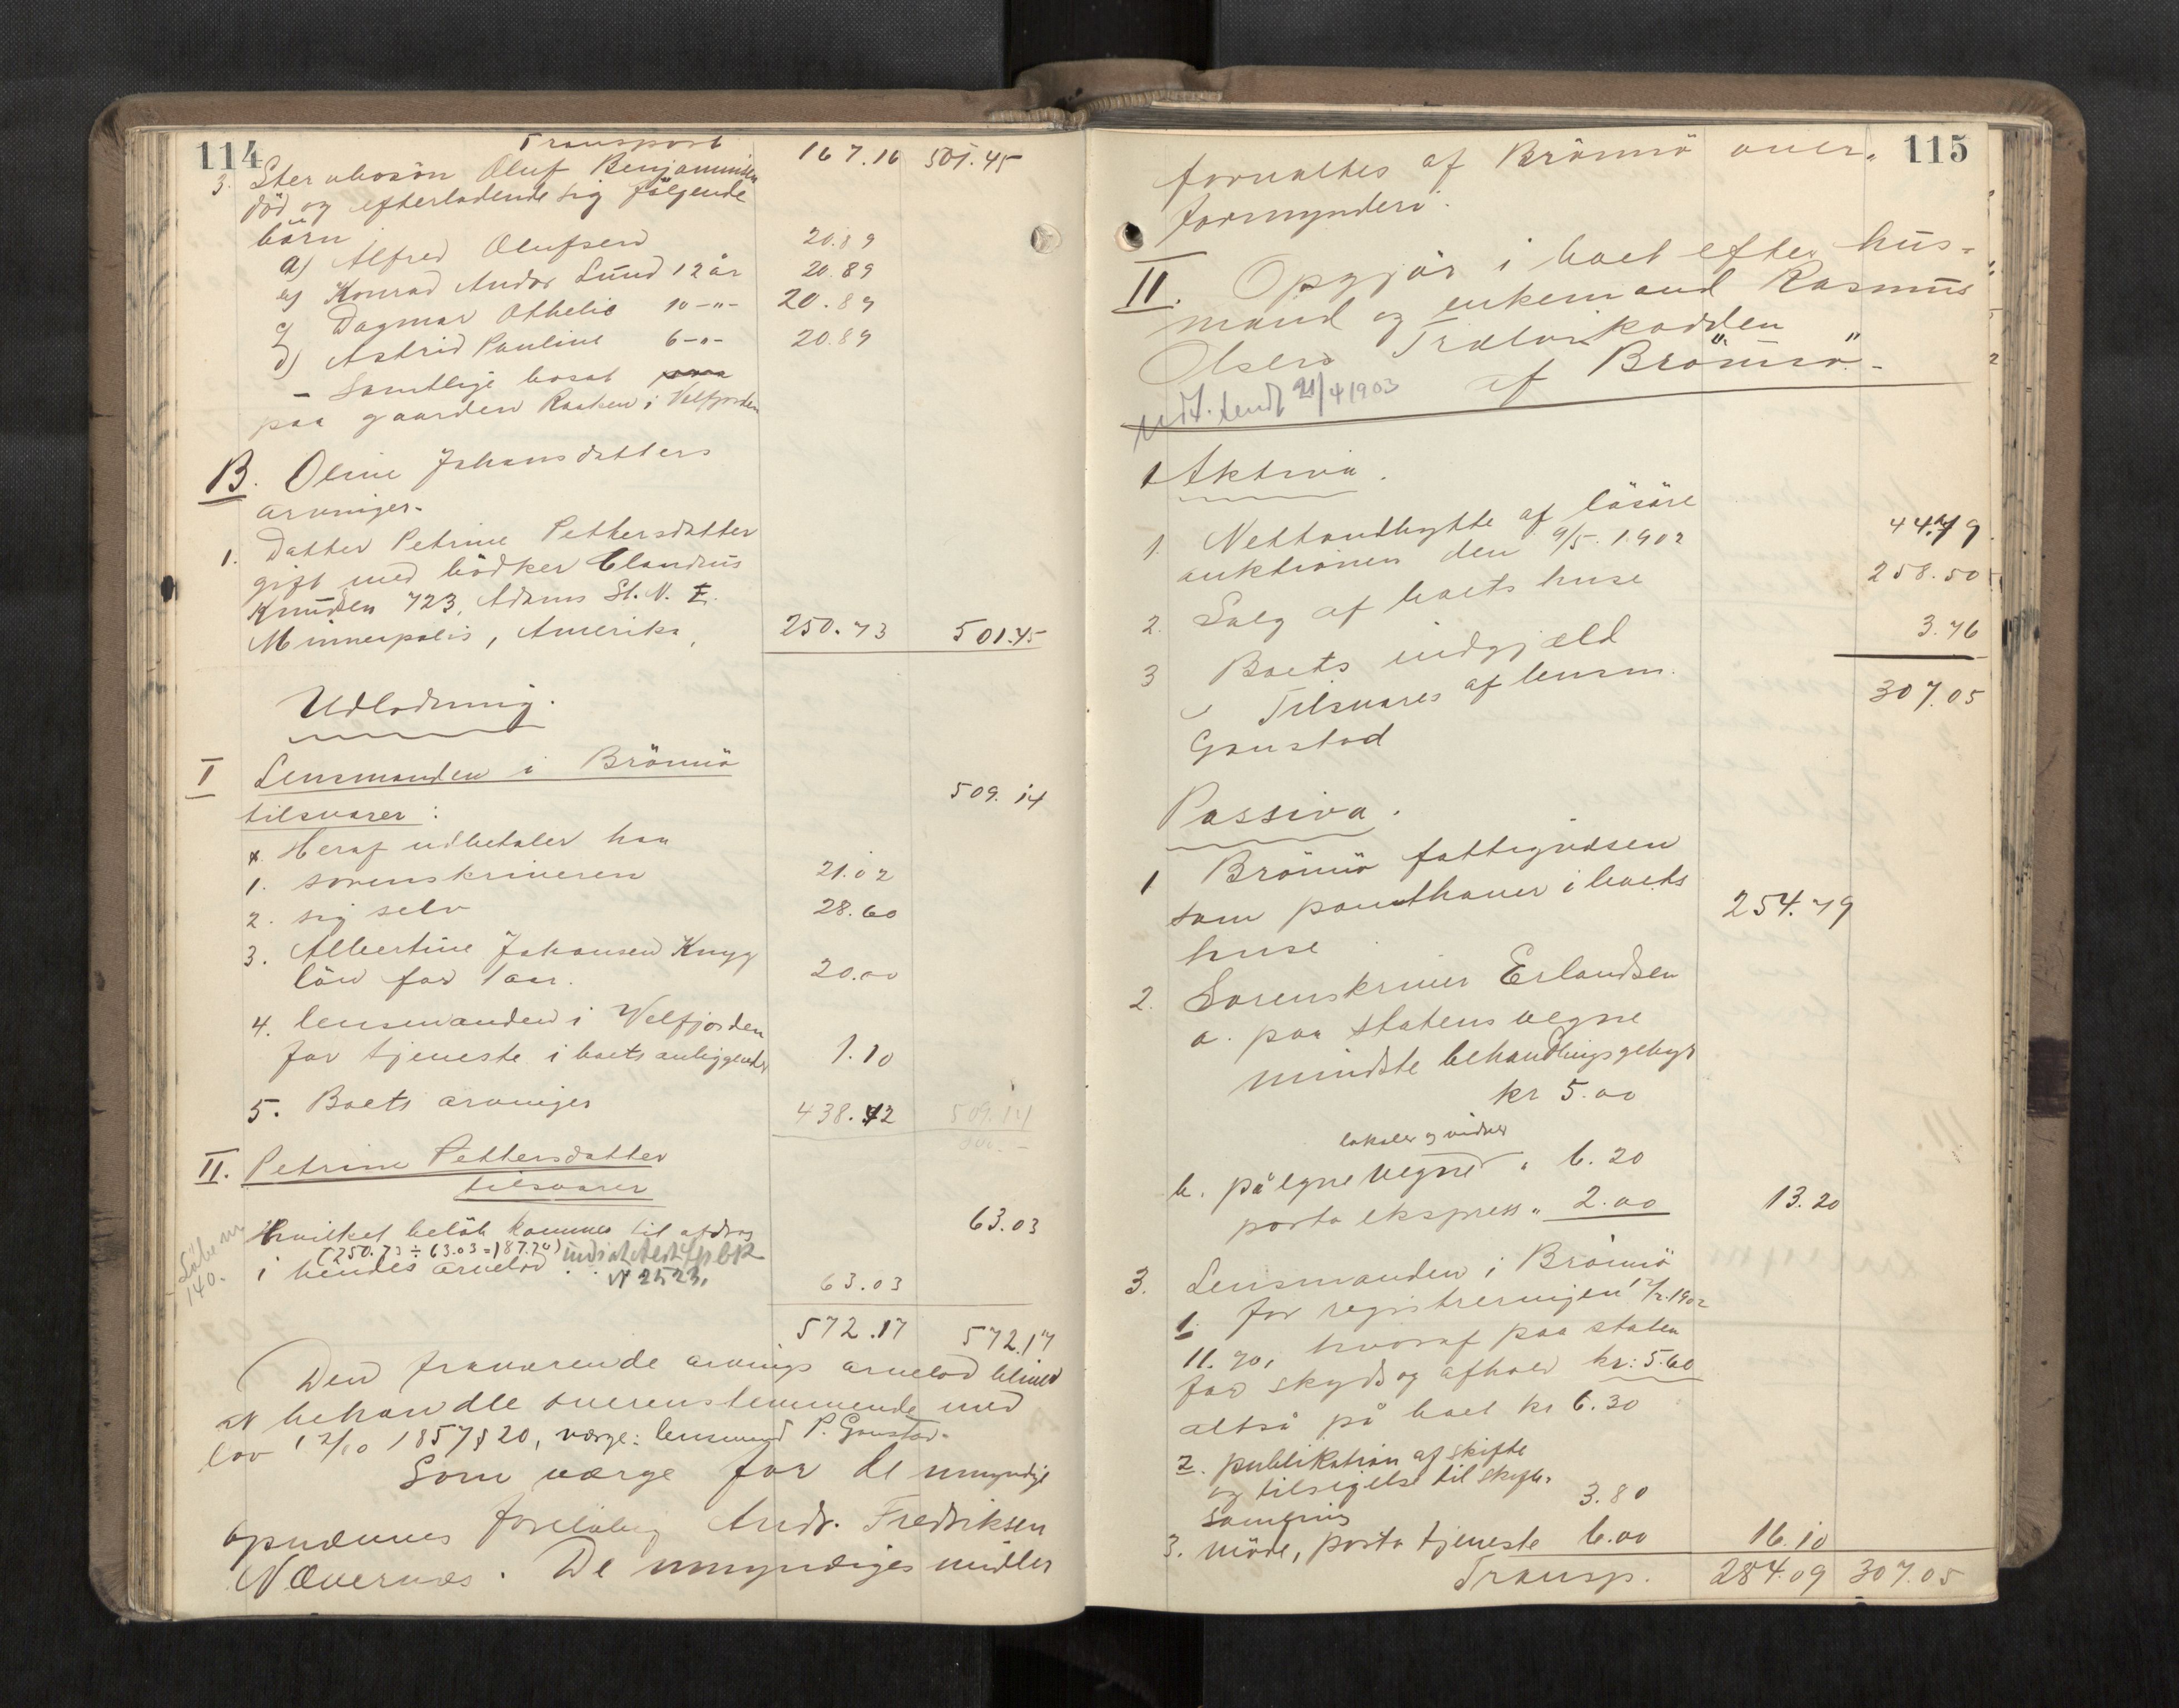 114
Transport 167.16 501.45
3. Sterubosön Oluf Benjaminsen
död og efterladende sig følgende
börn
a) Alfred Olufsen 20.89
b) Konrad Andor Lund 12 år 20.89
c) Dagmar Othelie 10 -"- 20.89
d) Astrid Pauline 6 -"- 20.89
- Samtlige bosat
paa gaarden Raaken i Velfjorden
B. Oline Johansdatters
arvinger.
1. Datter Petrine Pettersdatter
gift med bödker Claudius
Knudsen 723, Adams St. N. E.
Minnepolis, Amerika, 250.73 501.45
Udlodning.
I Lensmanden i Brönnö
tilsvarer: 509.14
Heraf udbetaler han
1. sorenskriveren 21.02
2. sig selv 28.60
3. Albertine Johansen Knyg
lön for 1 aar. 20.00
4. lensmanden i Velfjorden
for tjeneste i boets anliggender 1.10
5. Boets arvinger 438.42 509.14
II. Petrine Pettersdatter
tilsvarer 63.03
Hvilket belöb kommer til afdrag
(250.73 ÷ 63.03 = 187.70)
i hendes arvelod. 63.03
№ 2523.
Löbe nr
140.
572.17 572.17
Den fraværende arvings arvelod bliver
at behandle overensstemmende med
lov 12/10 1857 § 20, værge: lensmand P. Gaustad.
Som værge for de umyndige
opnævnes foreløbig Andr. Fredriksen
Nævernes. De umyndiges midler
115
forvaltes af Brönnö over-
formynderi.
II. Opgjör i boet efter hus-
mand og enkemand Rasmus
Olsen Trælvikodden
af Brönnö.
21/4 1903
Aktiva.
1. Nettoudbytte af lösöre
auktionen den 9/5. 1902 44.79
2. Salg af boets huse 258.50
3 Boets indgjæld 3.76
Tilsvares af lensm. 307.05
Gaustad
Passiva.
1 Brönnö fattigvæsen
som panthaver i boets 254.79
huse
2. Sorenskriver Erlandsen
a. paa statens vegne
mindste behandlingsgebyr
kr 5.00
lokaler og vidner
b. på egne vegne " 6.20
porto ekspress " 2.00 13.20
3. Lensmanden i Brönnö
1. for registreringen 12/2. 1902
11.90, hvoraf paa staten
for skyds og afhold kr: 5.60
altså på boet kr 6.30
2. publikation af skifte
og tilsigelse til skifte-
samling 3.80
3. möde, porto tjeneste 6.00 16.10
Transp. 284.09 307.05